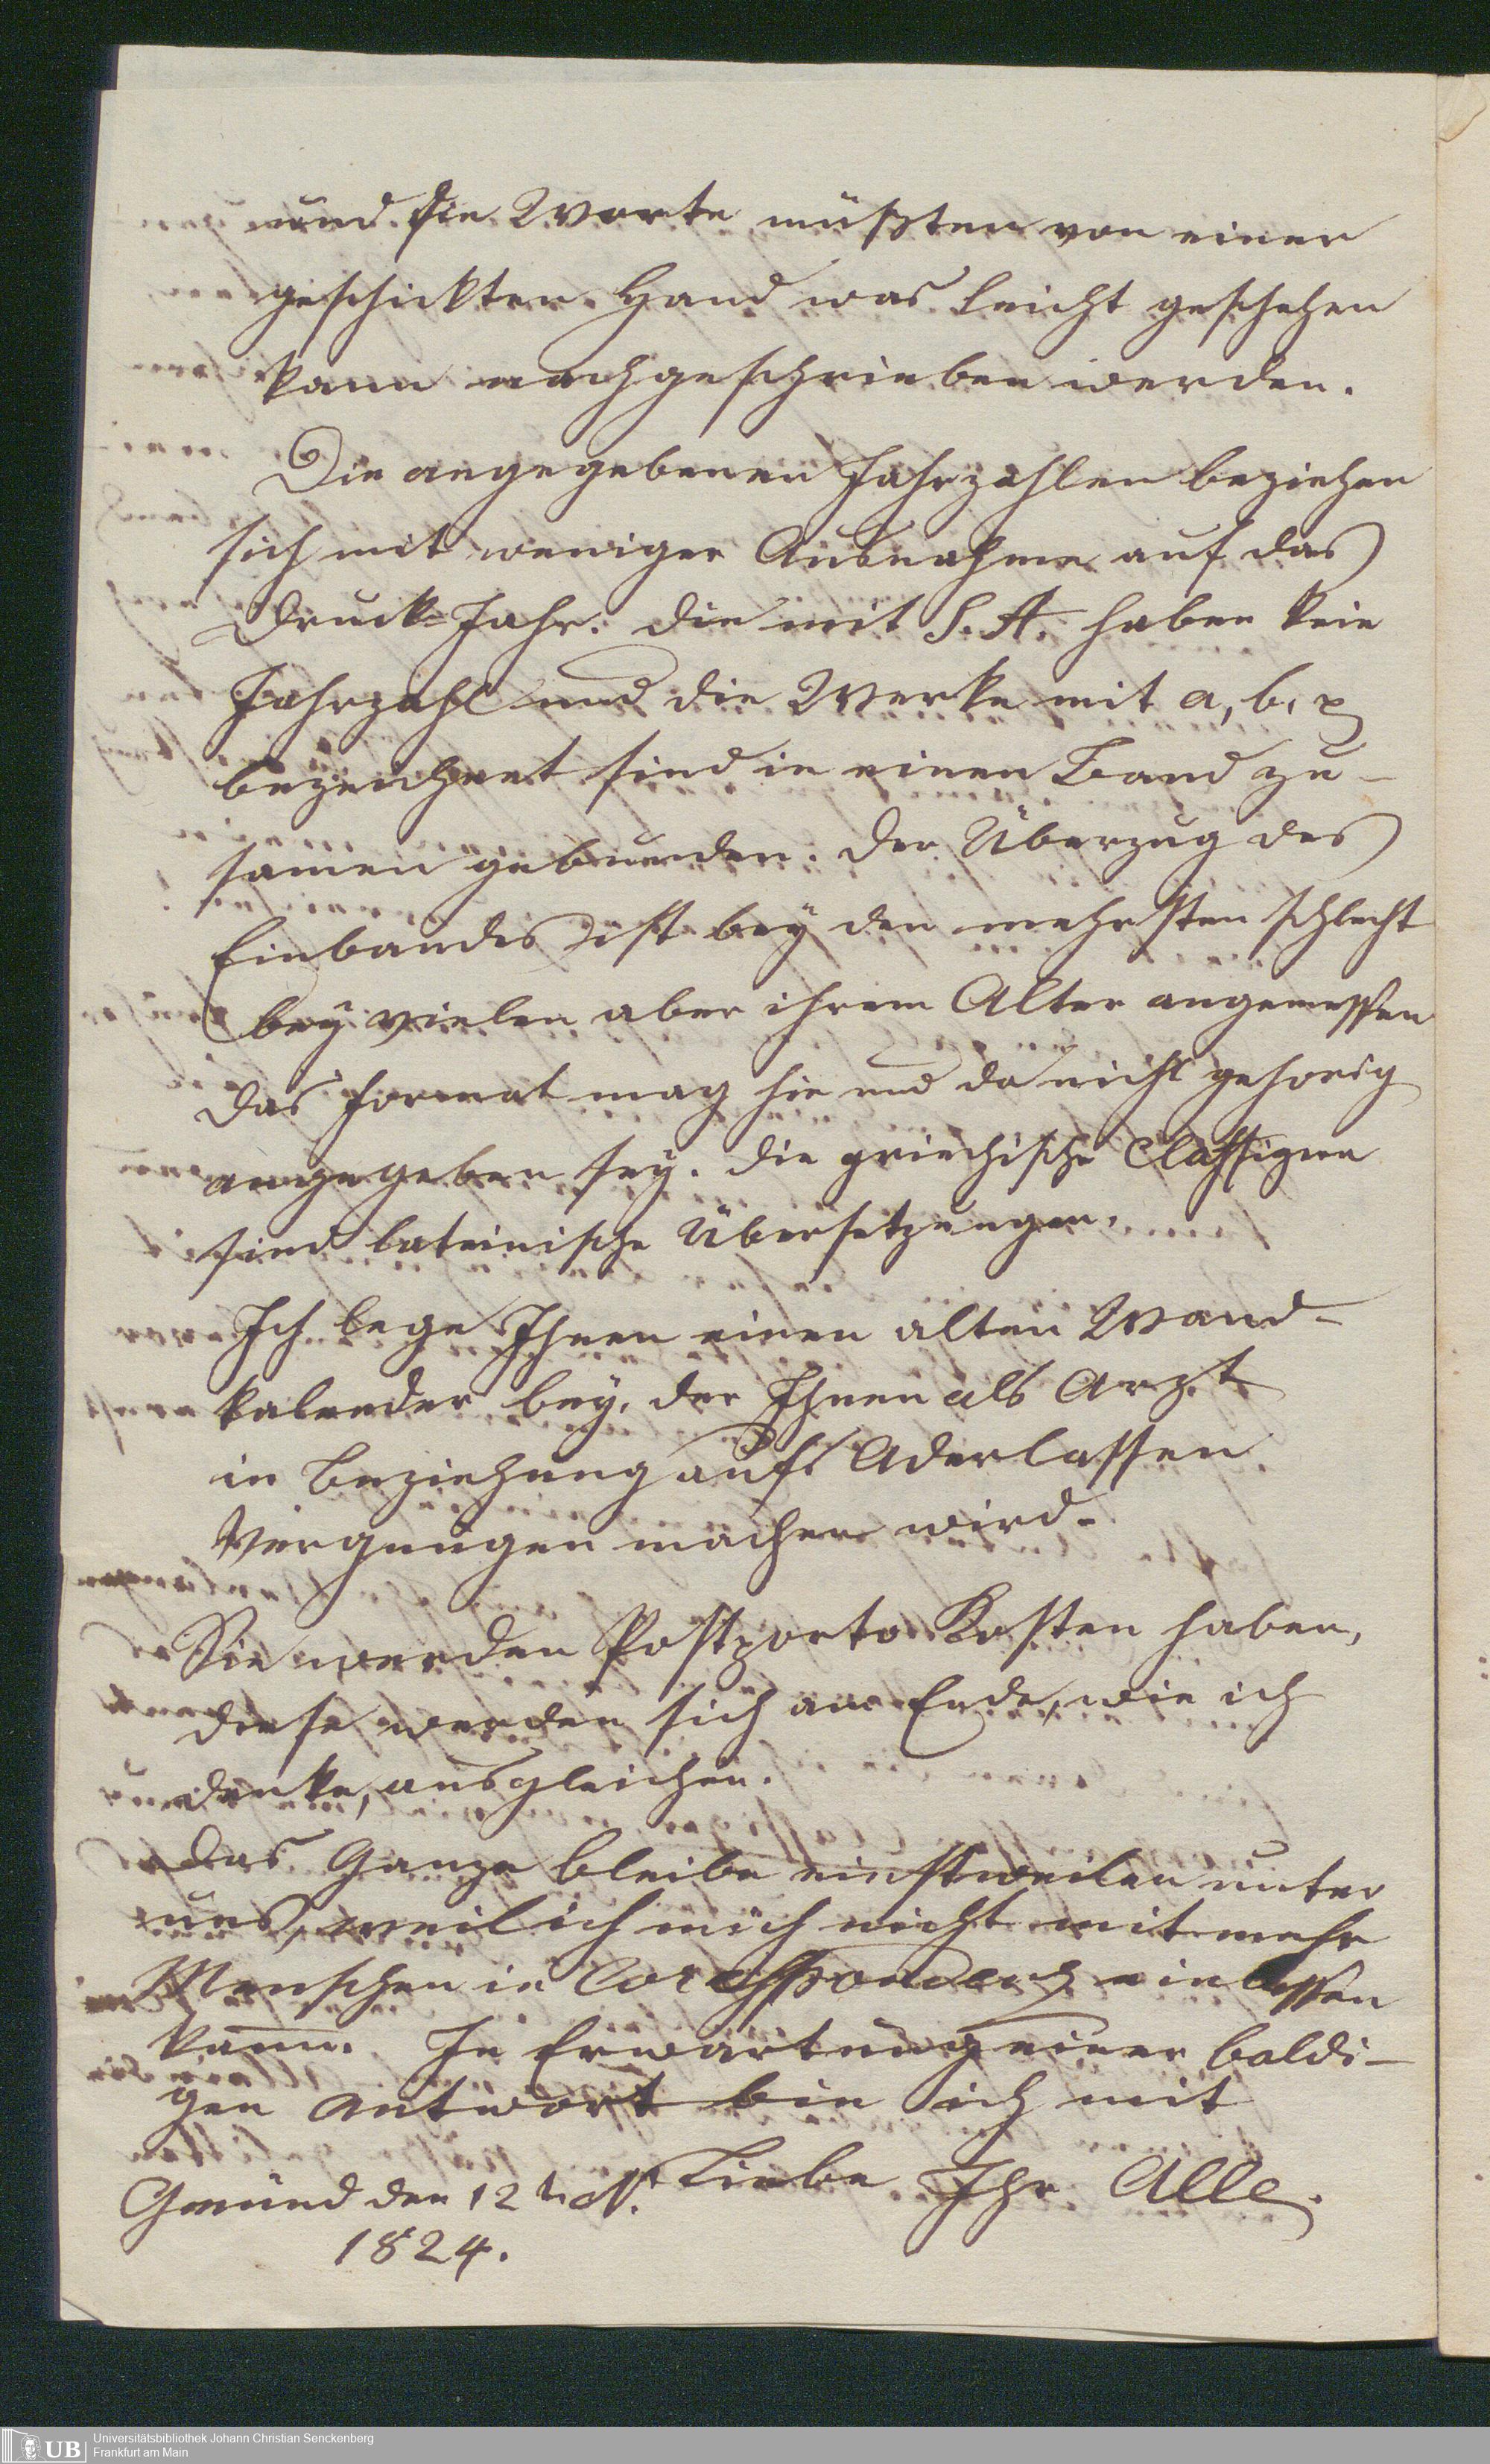 und die Worte müßten von einer
geschickten Hand was leicht geschehen
kann nachgeschrieben werden.
Die angegebenen Jahrzahlen beziehen
sich mit weniger Ausnahme auf das
Druck-Jahr. die mit S. A. haben kein
Jahrzahl und die Werke mit a, b, c
bezeichnet sind in einen Band zu-
samen gebunden. Der Überzug des
Einbandes ist bey den mehrsten schlecht
bey vielen aber ihrem Alter angemessen
das Format mag hie und da nicht gehorig
angegeben sey. die griechische Classiquer
sind lateinische Übersetzungen.
Ich lege Ihnen einen alten Wand-
kalender bey, der Ihnen als Arzt
in Beziehung aufs Aderlassen
Vergnugen machen wird.
Sie werden Postporto Kosten haben,
diese werden sich am Ende, wie ich
denke, ausgleichen.
das Ganze bleibe einstweilen unter
uns, weil ich mich nicht mit mehr
Menschen in Coresspondenz einlassen
kann. In Erwartung einer baldi-
gen Antwort bin ich mit
Liebe Ihr Alle.
Gmünd den 12
1824.
UB
Universitätsbibliothek Johann Christian Senckenberg
Frankfurt am Main